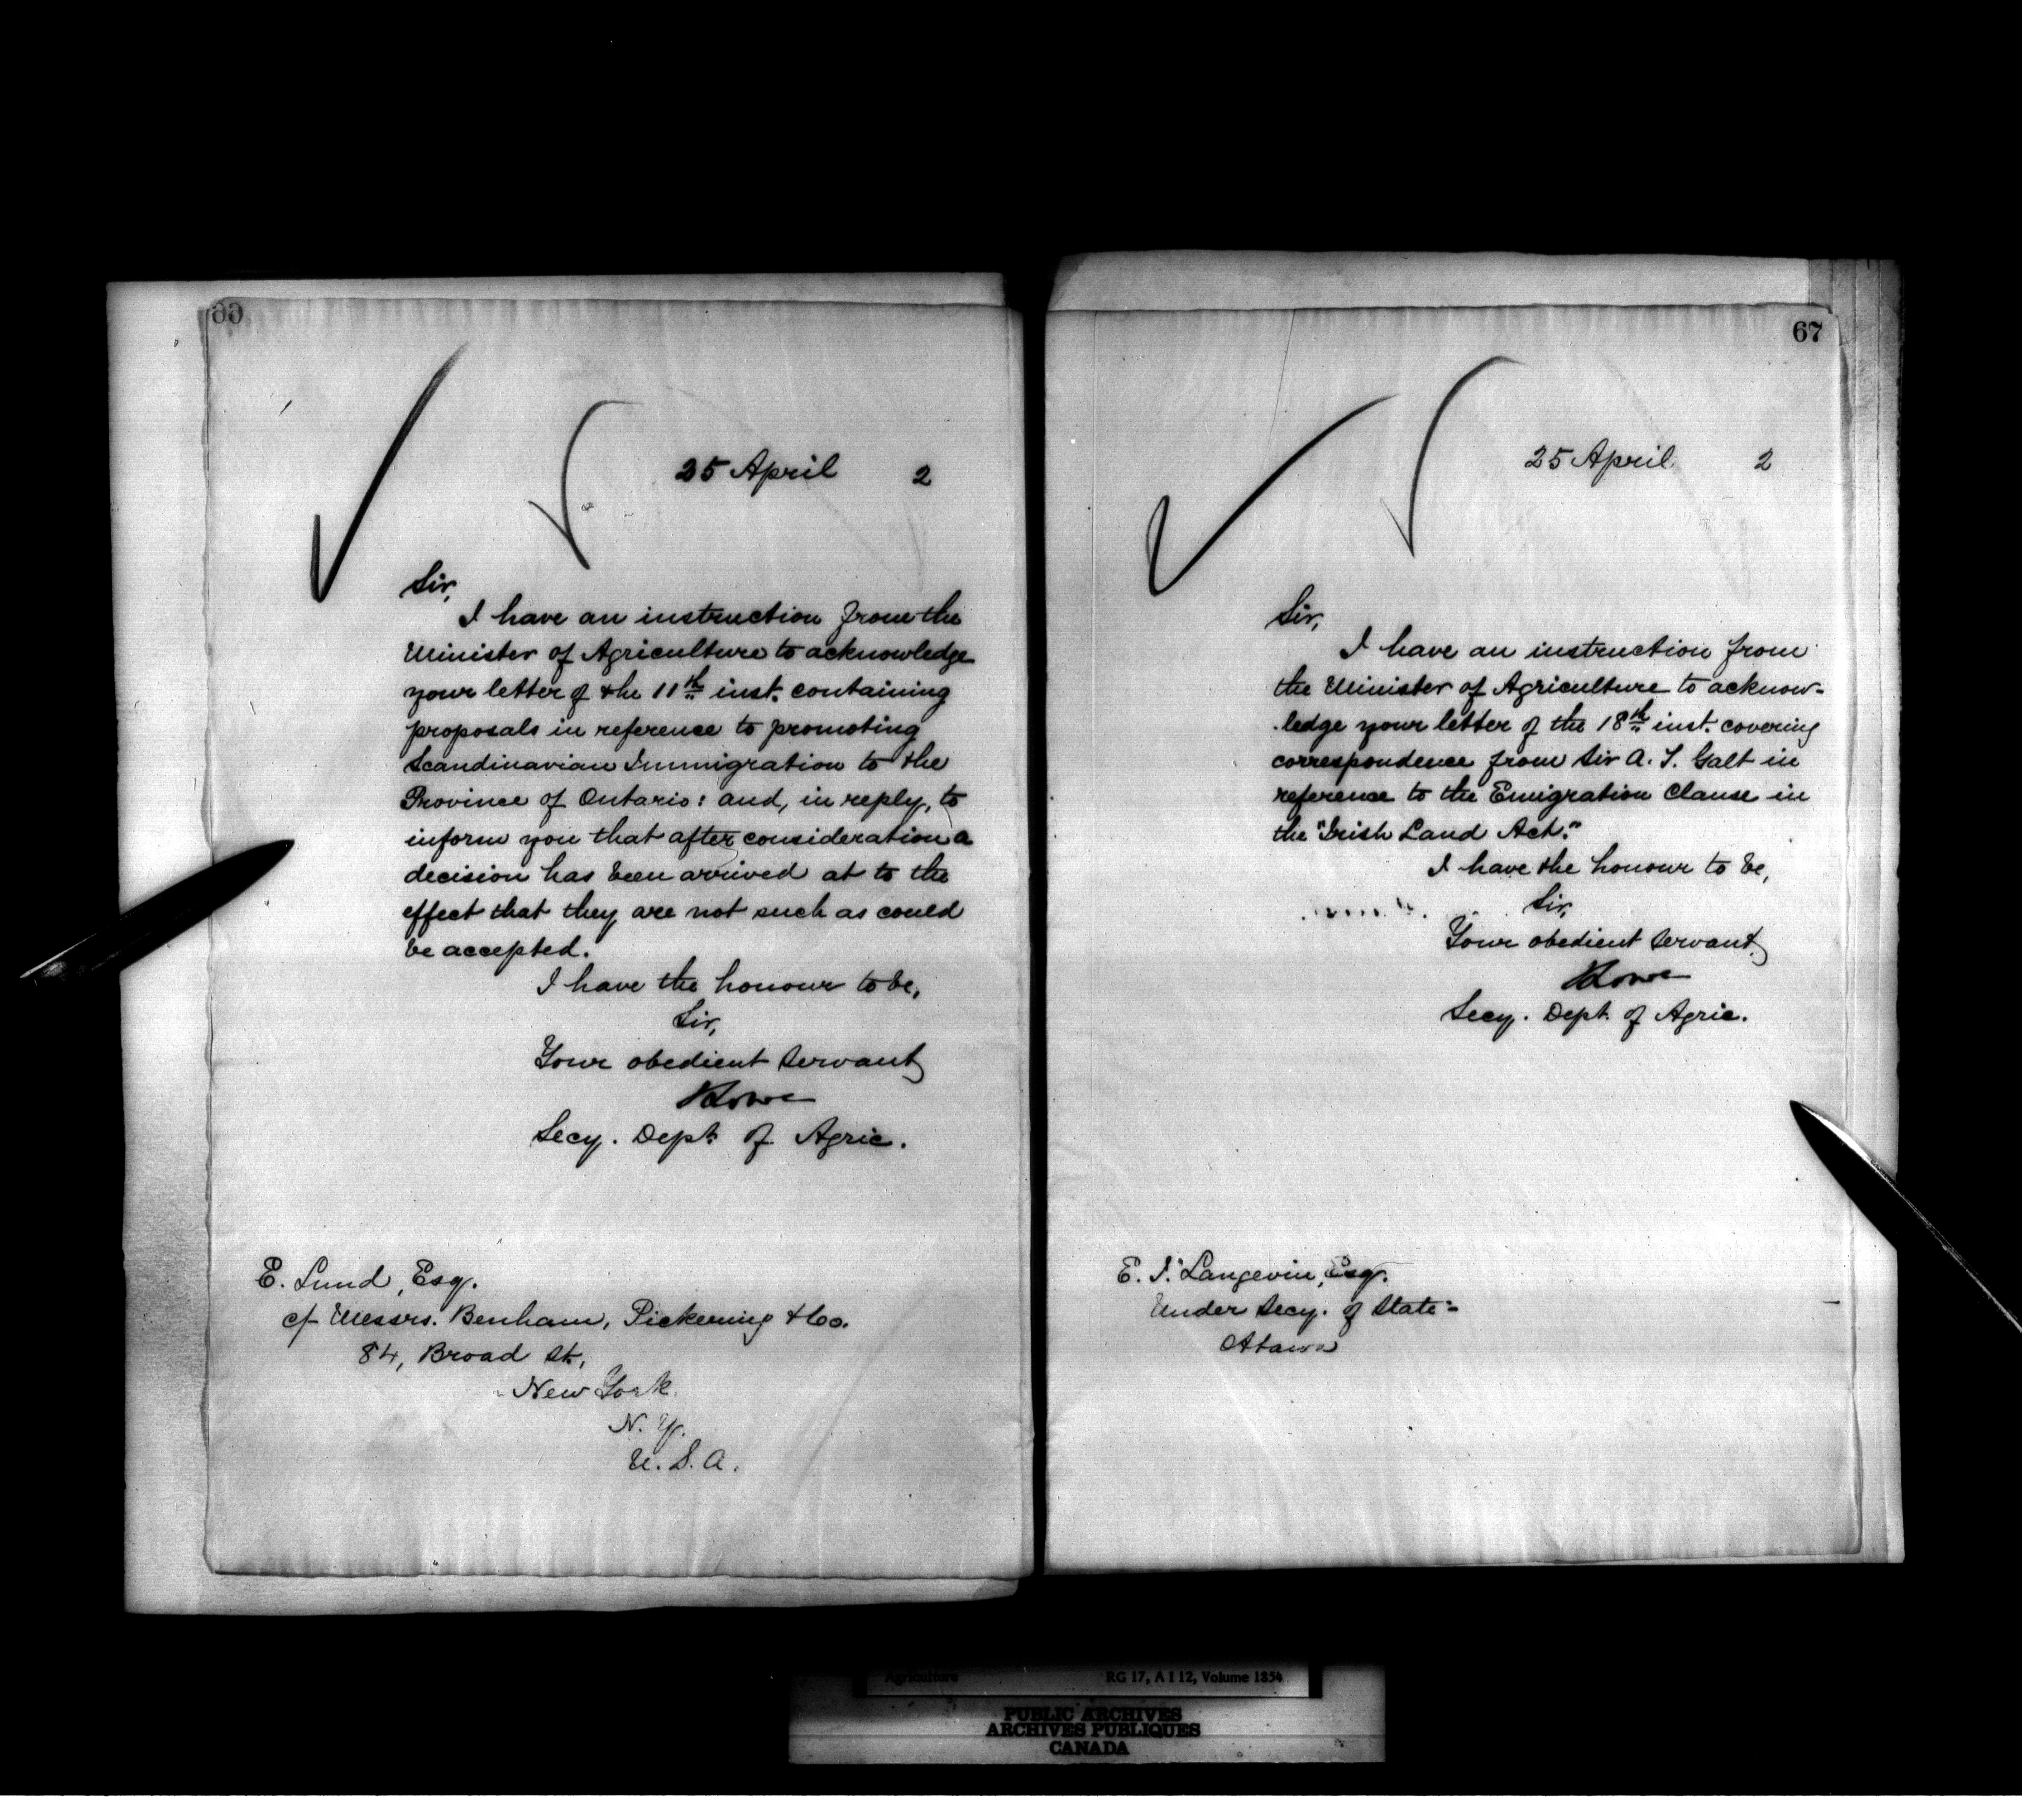 66
25 April 2
Sir,
I have an instruction from the
Minister of Agriculture to acknowledge
your letter of the 11th inst. containing
proposals in reference to promoting
Scandinavian Immigration to the
Province of Ontario: and, in reply, to
inform you that after consideration a
decision has been arrived at to the
effect that they are not such as could
be accepted.
I have the honour to be,
Sir,
Your obedient servant
Lowe
Secy. Dept. of Agric.
E. Lund, Esq.
c/ Messrs. Benham, Pickering & Co.
84, Broad St.,
New York
N. Y.
U. S. A.
67
25 April 2
Sir,
I have an instruction from
the Minister of Agriculture to acknow-
ledge your letter of the 18th inst. covering
correspondence from Sir A. T. Galt in
reference to the Emigration Clause in
the "Irish Land Act."
I have the honour to be,
Sir,
Your obedient servant
Lowe
Secy. Dept. of Agric.
E. J. Langevin, Esq.
Under Secy. of State
Ottawa
Agriculture RG 17, A I 12, Volume 1854
PUBLIC ARCHIVES
ARCHIVES PUBLIQUES
CANADA